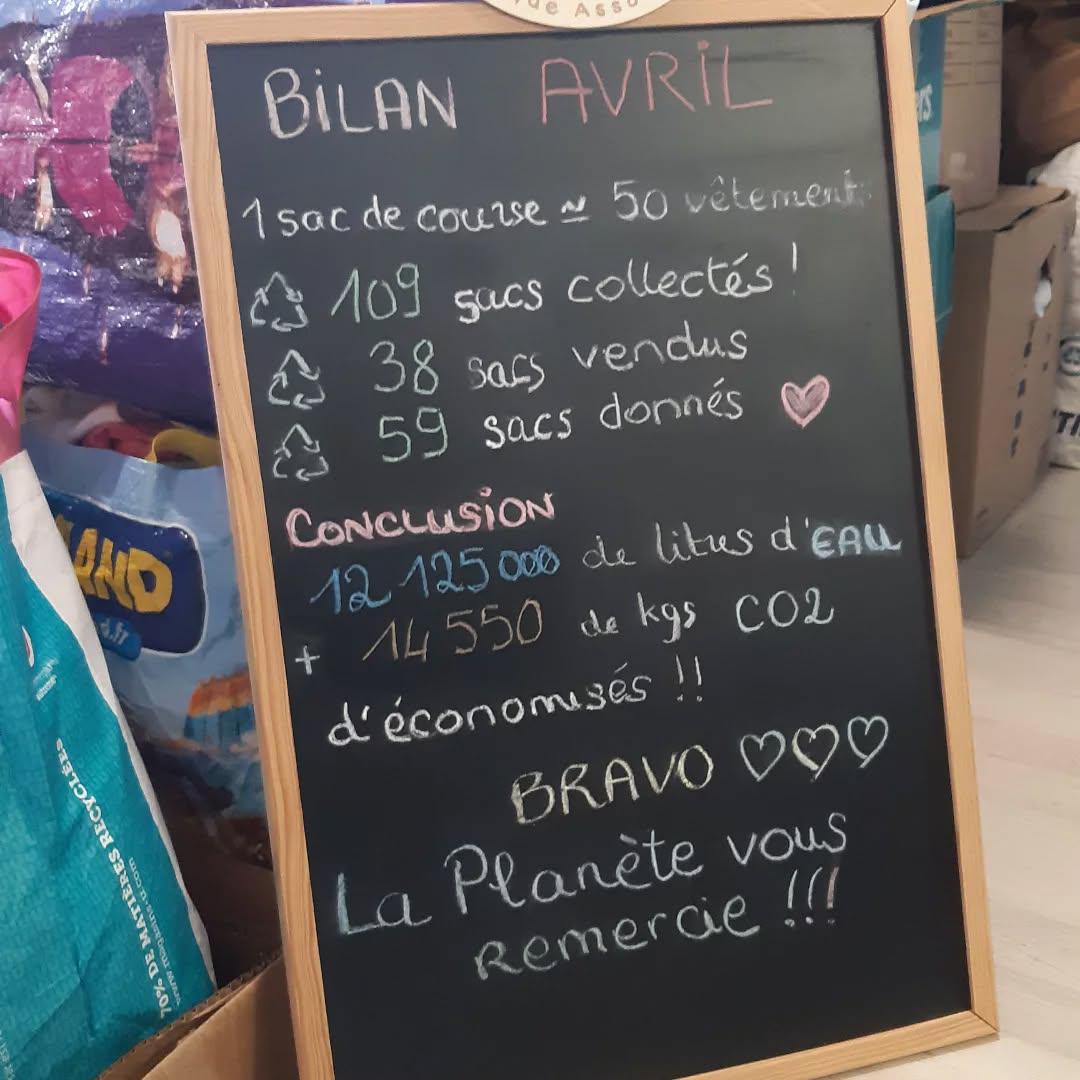 de Asso
BiLAN AVRiL
1 sac de course ≃ 50 vêtements
109 sacs collectés !
38 sacs vendus
59 sacs donnés
CONCLUSION
12 125 000 de litres d'EAU
+ 14 550 de kgs CO2
d'économisés !!
BRAVO
La Planète vous
remercie !!!
AND
d.fr
70% DE MATIÈRES RECYCLÉES
www.magasins-u.com